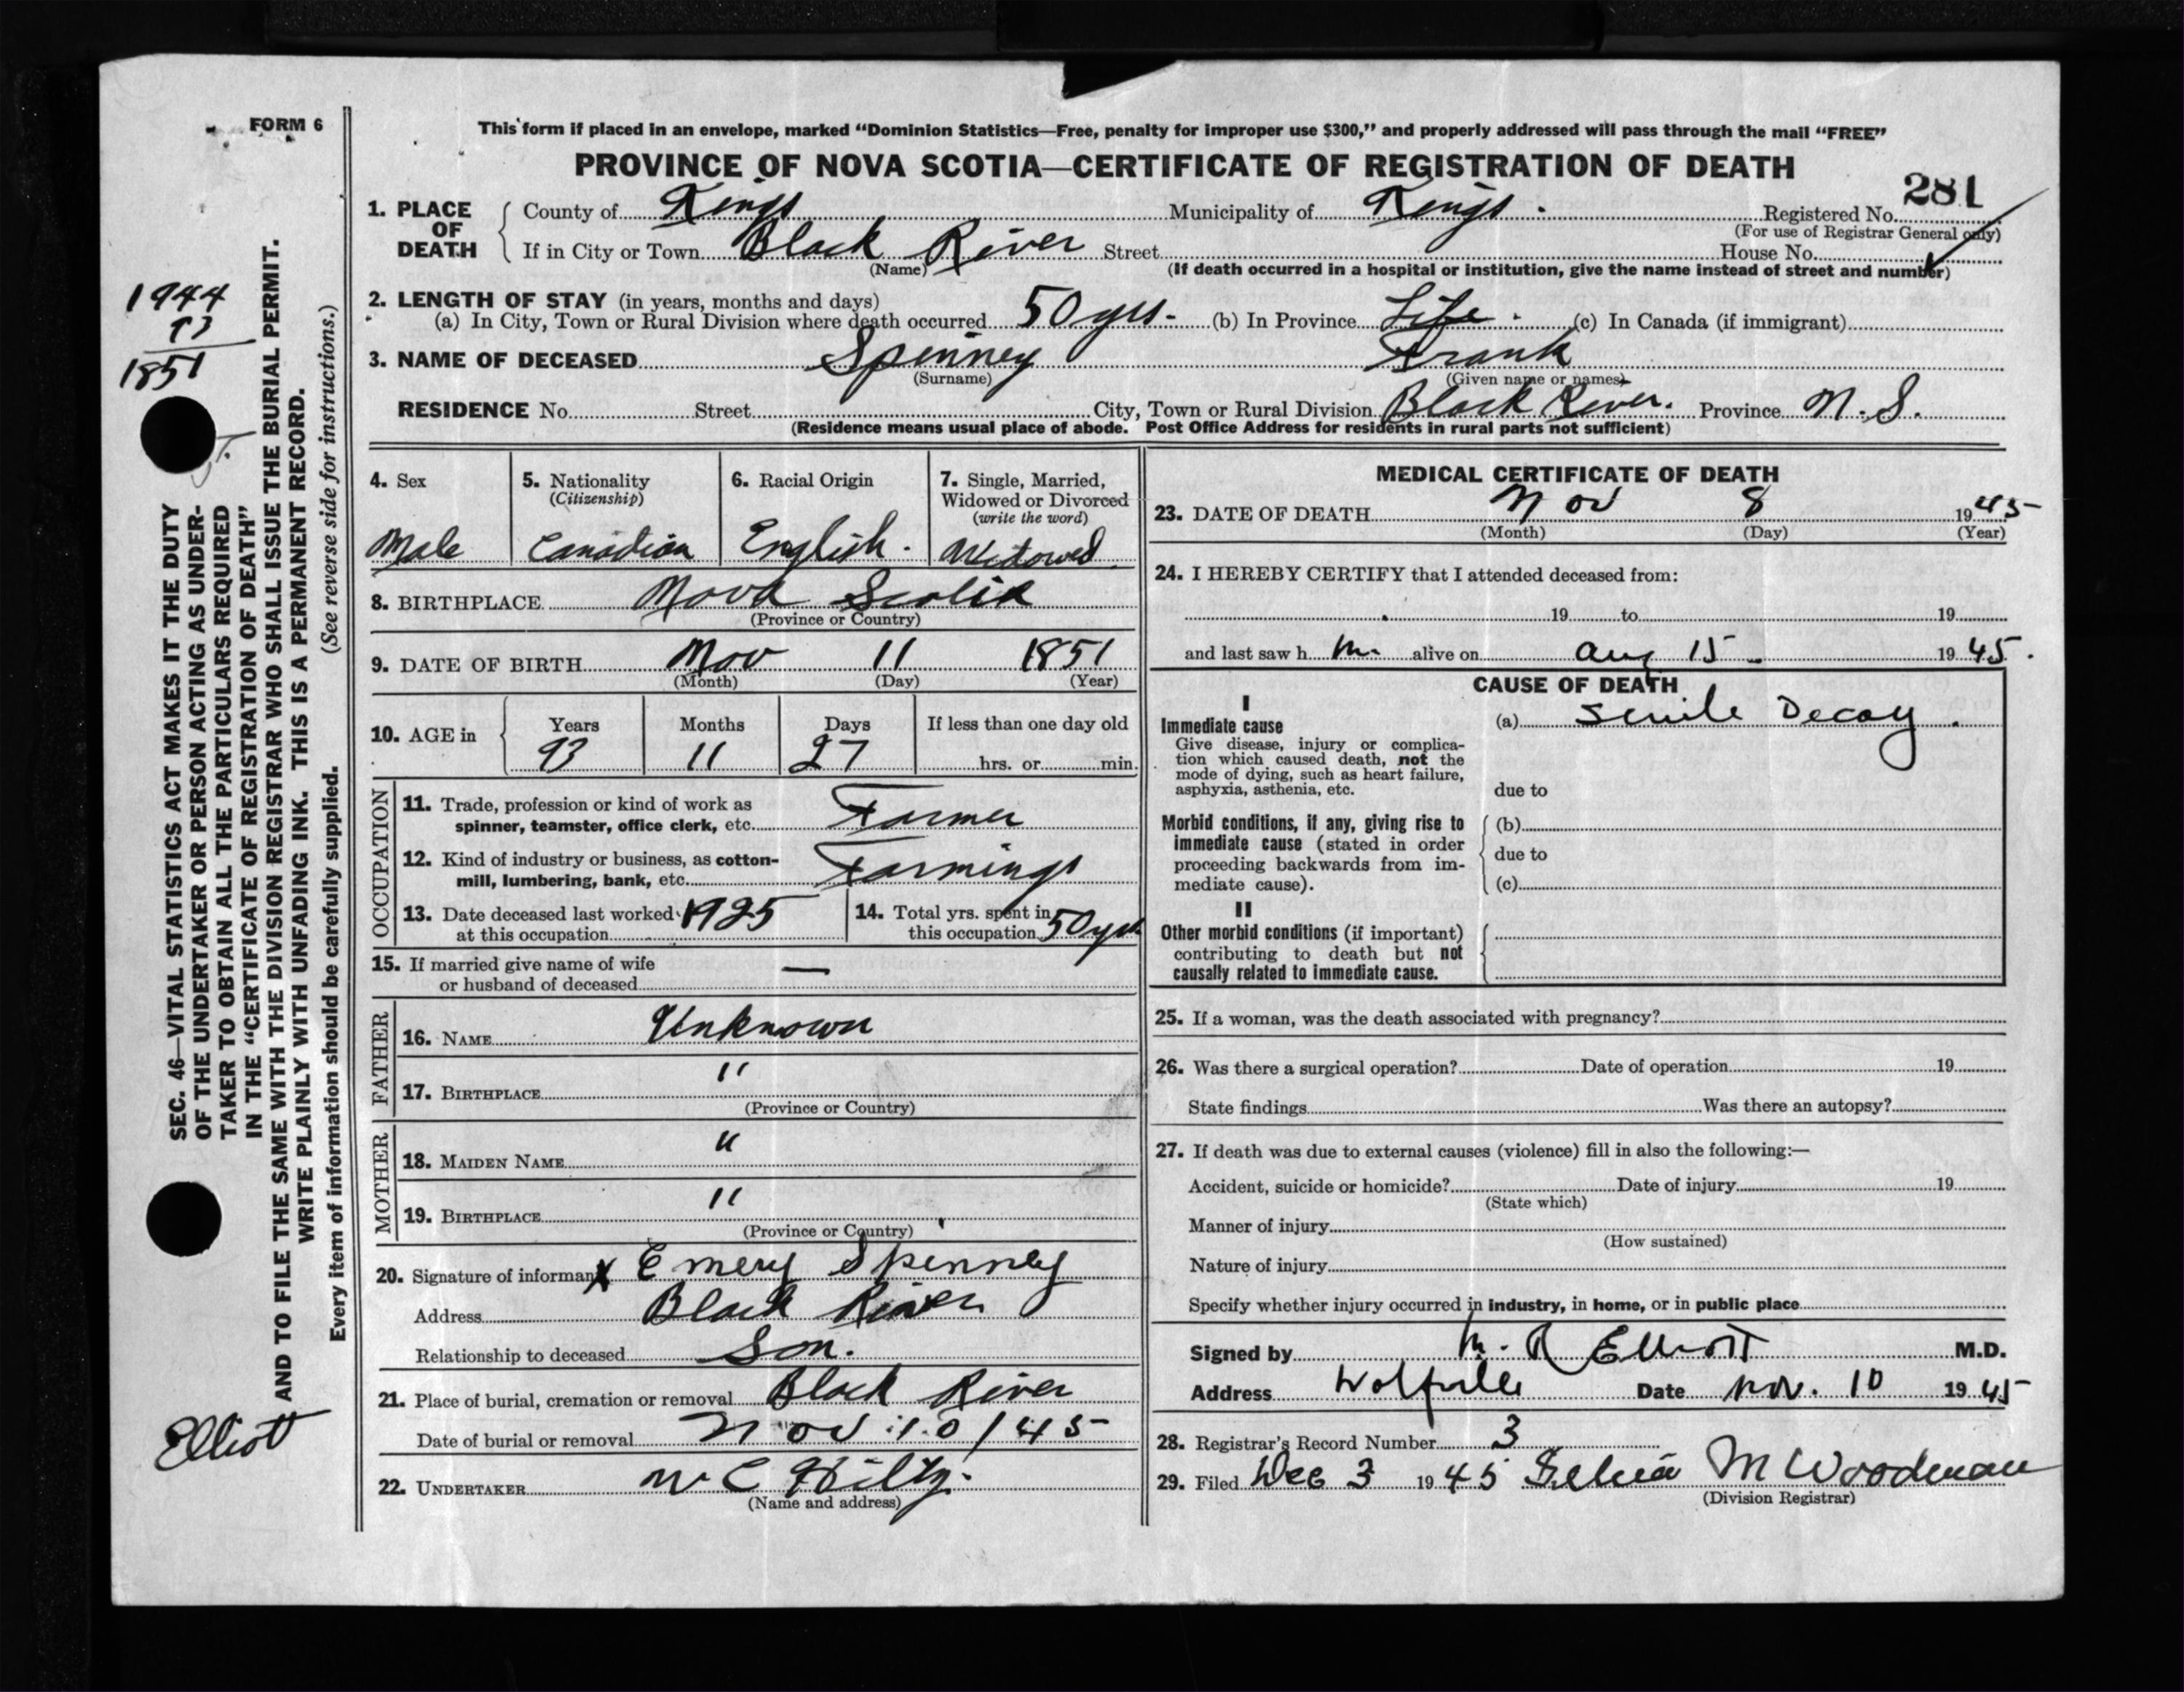 FORM 6
This form if placed in an envelope, marked “Dominion Statistics—Free, penalty for improper use $300,” and properly addressed will pass through the mail “FREE”
PROVINCE OF NOVA SCOTIA—CERTIFICATE OF REGISTRATION OF DEATH
281
1. PLACE OF DEATH
County of Kings Municipality of Kings. Registered No.
(For use of Registrar General only)
If in City or Town Black River Street House No.
(Name) (If death occurred in a hospital or institution, give the name instead of street and number)
2. LENGTH OF STAY (in years, months and days)
(a) In City, Town or Rural Division where death occurred 50 yrs. (b) In Province Life. (c) In Canada (if immigrant)
3. NAME OF DECEASED Spinney Frank
(Surname) (Given name or names)
RESIDENCE No. Street City, Town or Rural Division Black River. Province N.S.
(Residence means usual place of abode. Post Office Address for residents in rural parts not sufficient)
1944
93
1851
SEC. 46—VITAL STATISTICS ACT MAKES IT THE DUTY
OF THE UNDERTAKER OR PERSON ACTING AS UNDER-
TAKER TO OBTAIN ALL THE PARTICULARS REQUIRED
IN THE “CERTIFICATE OF REGISTRATION OF DEATH”
AND TO FILE THE SAME WITH THE DIVISION REGISTRAR WHO SHALL ISSUE THE BURIAL PERMIT.
WRITE PLAINLY WITH UNFADING INK. THIS IS A PERMANENT RECORD.
Every item of information should be carefully supplied. (See reverse side for instructions.)
Elliott
4. Sex
Male
5. Nationality
(Citizenship)
Canadian
6. Racial Origin
English.
7. Single, Married,
Widowed or Divorced
(write the word)
Widowed
8. BIRTHPLACE Nova Scotia
(Province or Country)
9. DATE OF BIRTH Nov 11 1851
(Month) (Day) (Year)
10. AGE in Years Months Days If less than one day old
93 11 27 hrs. or min.
OCCUPATION
11. Trade, profession or kind of work as
spinner, teamster, office clerk, etc. Farmer
12. Kind of industry or business, as cotton-
mill, lumbering, bank, etc. Farming
13. Date deceased last worked
at this occupation 1925
14. Total yrs. spent in
this occupation 50 yrs
15. If married give name of wife
or husband of deceased —
FATHER
16. NAME Unknown
17. BIRTHPLACE "
(Province or Country)
MOTHER
18. MAIDEN NAME "
19. BIRTHPLACE "
(Province or Country)
20. Signature of informant X Emery Spinney
Address Black River
Relationship to deceased Son.
21. Place of burial, cremation or removal Black River
Date of burial or removal Nov 10/45
22. UNDERTAKER W C Hiltz.
(Name and address)
MEDICAL CERTIFICATE OF DEATH
23. DATE OF DEATH Nov 8 1945
(Month) (Day) (Year)
24. I HEREBY CERTIFY that I attended deceased from:
19 to 19
and last saw h m. alive on Aug 15 1945.
CAUSE OF DEATH
I
Immediate cause (a) Senile Decay.
Give disease, injury or complica-
tion which caused death, not the
mode of dying, such as heart failure,
asphyxia, asthenia, etc. due to
Morbid conditions, if any, giving rise to (b)
immediate cause (stated in order due to
proceeding backwards from im-
mediate cause). (c)
II
Other morbid conditions (if important)
contributing to death but not
causally related to immediate cause.
25. If a woman, was the death associated with pregnancy?
26. Was there a surgical operation? Date of operation 19
State findings Was there an autopsy?
27. If death was due to external causes (violence) fill in also the following:—
Accident, suicide or homicide? Date of injury 19
(State which)
Manner of injury
(How sustained)
Nature of injury
Specify whether injury occurred in industry, in home, or in public place
Signed by M. R Elliott M.D.
Address Wolfville Date Nov. 10 1945
28. Registrar's Record Number 3
29. Filed Dec 3 1945 M Woodman
(Division Registrar)